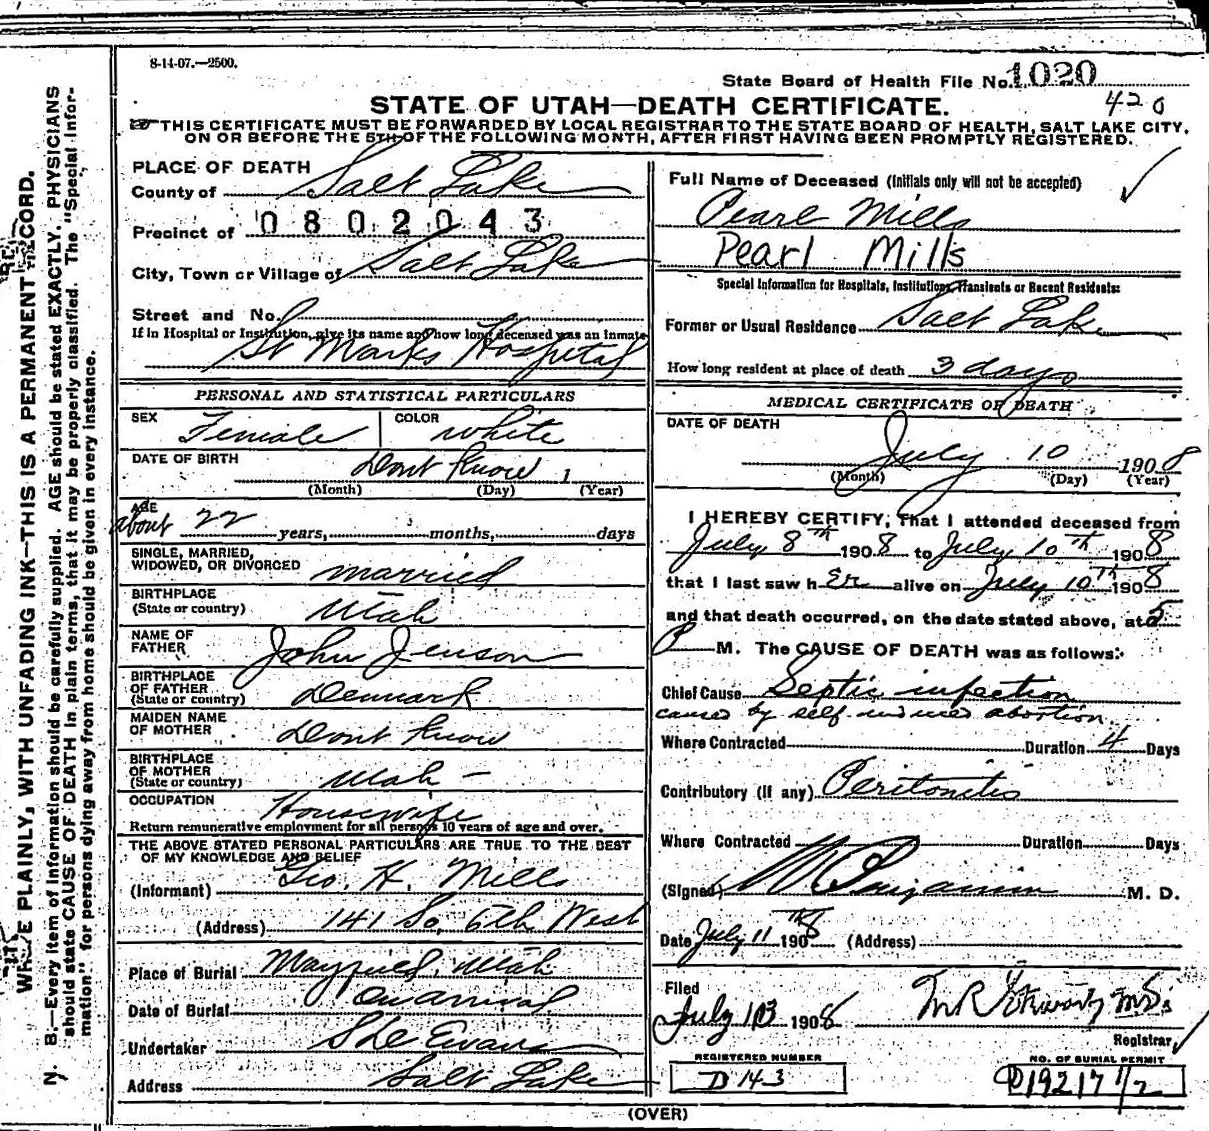 8-14-07.—2500.
State Board of Health File No. 1020
420
STATE OF UTAH—DEATH CERTIFICATE.
THIS CERTIFICATE MUST BE FORWARDED BY LOCAL REGISTRAR TO THE STATE BOARD OF HEALTH, SALT LAKE CITY,
ON OR BEFORE THE 5TH OF THE FOLLOWING MONTH, AFTER FIRST HAVING BEEN PROMPTLY REGISTERED.
WRITE PLAINLY, WITH UNFADING INK—THIS IS A PERMANENT RECORD.
N. B.—Every item of information should be carefully supplied. AGE should be stated EXACTLY. PHYSICIANS
should state CAUSE OF DEATH in plain terms, that it may be properly classified. The "Special Infor-
mation" for persons dying away from home should be given in every instance.
PLACE OF DEATH
County of Salt Lake
Precinct of 0802043
City, Town or Village of Salt Lake
Street and No.
If in Hospital or Institution, give its name and how long deceased was an inmate
St Marks Hospital
PERSONAL AND STATISTICAL PARTICULARS
SEX Female COLOR white
DATE OF BIRTH Dont Know 1
(Month) (Day) (Year)
AGE
about 22 years, months, days
SINGLE, MARRIED,
WIDOWED, OR DIVORCED married
BIRTHPLACE
(State or country) Utah
NAME OF
FATHER John Jenson
BIRTHPLACE
OF FATHER
(State or country) Denmark
MAIDEN NAME
OF MOTHER Dont Know
BIRTHPLACE
OF MOTHER
(State or country) Utah -
OCCUPATION Housewife
Return remunerative employment for all persons 10 years of age and over.
THE ABOVE STATED PERSONAL PARTICULARS ARE TRUE TO THE BEST
OF MY KNOWLEDGE AND BELIEF
(Informant) Geo. H. Mills
(Address) 141 So. 6th West
Place of Burial Mayfield, Utah
Date of Burial On arrival
Undertaker Evans
Address Salt Lake
Full Name of Deceased (Initials only will not be accepted)
Pearl Mills
Pearl Mills
Special Information for Hospitals, Institutions, Transients or Recent Residents:
Former or Usual Residence Salt Lake
How long resident at place of death 3 days
MEDICAL CERTIFICATE OF DEATH
DATE OF DEATH
July 10 1908
(Month) (Day) (Year)
I HEREBY CERTIFY, That I attended deceased from
July 8th 1908 to July 10th 1908
that I last saw h er alive on July 10th 1908
and that death occurred, on the date stated above, at 5
P M. The CAUSE OF DEATH was as follows:
Chief Cause Septic infection
caused by self induced abortion
Where Contracted Duration 4 Days
Contributory (if any) Peritonitis
Where Contracted Duration Days
(Signed) M. D.
Date July 11th 1908 (Address)
Filed
July 13 1908
M.D.
Registrar
REGISTERED NUMBER
D 143
NO. OF BURIAL PERMIT
D19217 1/2
(OVER)